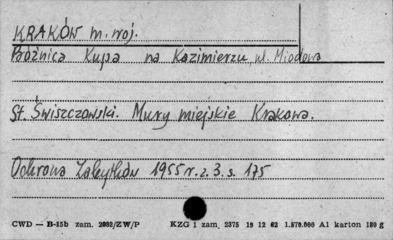 KRAKÓW m. woj.
Bóżnica Kupa na Kazimierzu ul. Miodowa
St. Świszczowski. Mury miejskie Krakowa.
Ochrona Zabytków 1955 r. z. 3. s. 175
CWD — B-15b zam. 2082/ZW/P KZG 1 zam. 2375 18 12 62 1.570.000 A1 karton 180 g